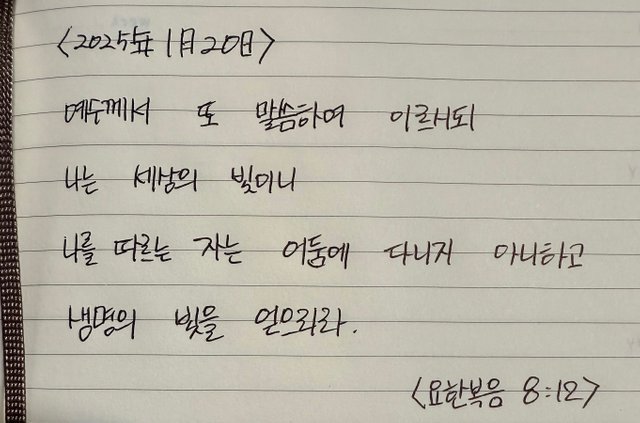 <2025年 1月 20日>
예수께서 또 말씀하여 이르시되
나는 세상의 빛이니
나를 따르는 자는 어둠에 다니지 아니하고
생명의 빛을 얻으리라.
<요한복음 8:12>